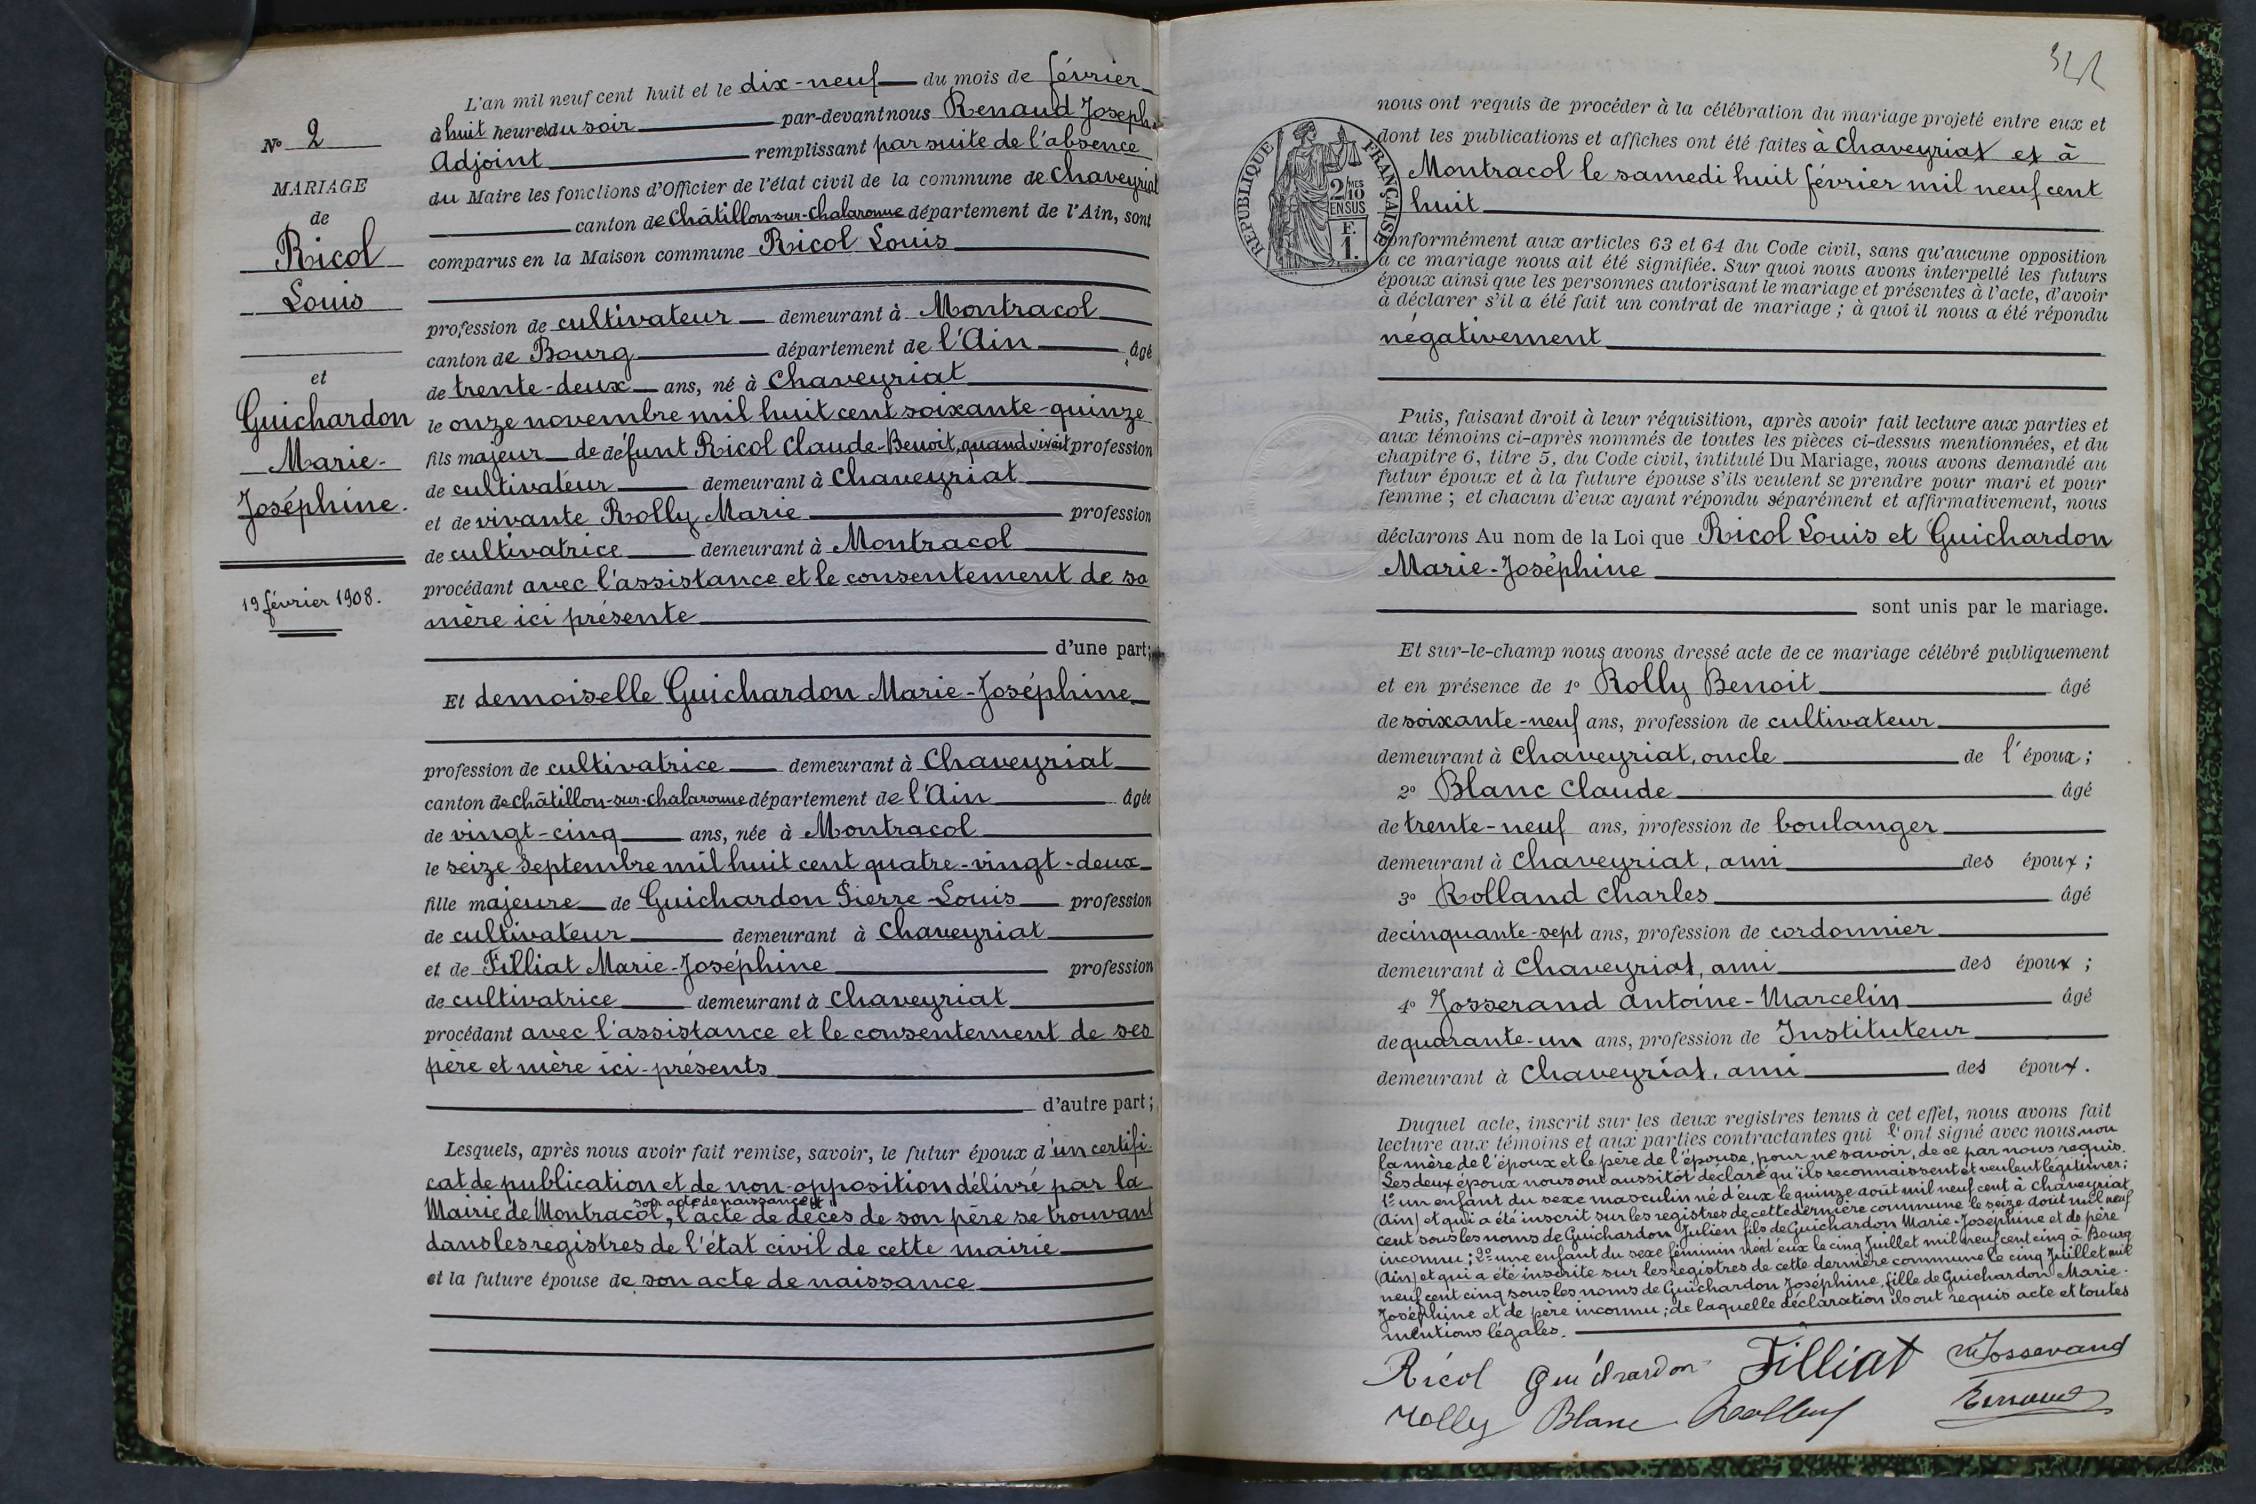 N° 2
MARIAGE
de
Ricol
Louis
et
Guichardon
Marie-
Joséphine.
19 février 1908.
L'an mil neuf cent huit et le dix-neuf du mois de février
à huit heures du soir par-devant nous Renaud Joseph
Adjoint remplissant par suite de l'absence
du Maire les fonctions d'Officier de l'état civil de la commune de Chaveyriat
canton de Châtillon-sur-Chalaronne département de l'Ain, sont
comparus en la Maison commune Ricol Louis
profession de cultivateur demeurant à Montracol
canton de Bourg département de l'Ain âgé
de trente-deux ans, né à Chaveyriat
le onze novembre mil huit cent soixante-quinze
fils majeur de défunt Ricol Claude-Benoit, quand vivait profession
de cultivateur demeurant à Chaveyriat
et de vivante Rolly Marie profession
de cultivatrice demeurant à Montracol
procédant avec l'assistance et le consentement de sa
mère ici présente
d'une part;
Et demoiselle Guichardon Marie-Joséphine
profession de cultivatrice demeurant à Chaveyriat
canton de Châtillon-sur-Chalaronne département de l'Ain âgée
de vingt-cinq ans, née à Montracol
le seize Septembre mil huit cent quatre-vingt-deux
fille majeure de Guichardon Pierre-Louis profession
de cultivateur demeurant à Chaveyriat
et de Filliat Marie-Joséphine profession
de cultivatrice demeurant à Chaveyriat
procédant avec l'assistance et le consentement de ses
père et mère ici-présents
d'autre part;
Lesquels, après nous avoir fait remise, savoir, le futur époux d'un certifi-
cat de publication et de non-opposition délivré par la
son acte de naissance et
Mairie de Montracol, l'acte de décès de son père se trouvant
dans les registres de l'état civil de cette mairie
et la future épouse de son acte de naissance
RÉPUBLIQUE FRANÇAISE
2/10MES
EN SUS
F.
1.
nous ont requis de procéder à la célébration du mariage projeté entre eux et
dont les publications et affiches ont été faites à Chaveyriat et à
Montracol le samedi huit février mil neuf cent
huit
Conformément aux articles 63 et 64 du Code civil, sans qu'aucune opposition
à ce mariage nous ait été signifiée. Sur quoi nous avons interpellé les futurs
époux ainsi que les personnes autorisant le mariage et présentes à l'acte, d'avoir
à déclarer s'il a été fait un contrat de mariage ; à quoi il nous a été répondu
négativement
Puis, faisant droit à leur réquisition, après avoir fait lecture aux parties et
aux témoins ci-après nommés de toutes les pièces ci-dessus mentionnées, et du
chapitre 6, titre 5, du Code civil, intitulé Du Mariage, nous avons demandé au
futur époux et à la future épouse s'ils veulent se prendre pour mari et pour
femme ; et chacun d'eux ayant répondu séparément et affirmativement, nous
déclarons Au nom de la Loi que Ricol Louis et Guichardon
Marie-Joséphine
sont unis par le mariage.
Et sur-le-champ nous avons dressé acte de ce mariage célébré publiquement
et en présence de 1° Rolly Benoit âgé
de soixante-neuf ans, profession de cultivateur
demeurant à Chaveyriat, oncle de l'époux ;
2° Blanc Claude âgé
de trente-neuf ans, profession de boulanger
demeurant à Chaveyriat, ami des époux ;
3° Rolland Charles âgé
de cinquante-sept ans, profession de cordonnier
demeurant à Chaveyriat, ami des époux ;
4° Josserand Antoine-Marcelin âgé
de quarante-un ans, profession de Instituteur
demeurant à Chaveyriat, ami des époux.
Duquel acte, inscrit sur les deux registres tenus à cet effet, nous avons fait
lecture aux témoins et aux parties contractantes qui l'ont signé avec nous, non
la mère de l'époux et le père de l'épouse, pour ne savoir, de ce par nous requis.
Les deux époux nous ont aussitôt déclaré qu'ils reconnaissent et veulent légitimer;
1° un enfant du sexe masculin né d'eux le quinze août mil neuf cent à Chaveyriat
(Ain) et qui a été inscrit sur les registres de cette dernière commune le seize août mil neuf
cent sous les noms de Guichardon Julien fils de Guichardon Marie-Joséphine et de père
inconnu; 2° une enfant du sexe féminin née d'eux le cinq Juillet mil neuf cent cinq à Bourg
(Ain) et qui a été inscrite sur les registres de cette dernière commune le cinq Juillet mil
neuf cent cinq sous les noms de Guichardon Joséphine, fille de Guichardon Marie-
Joséphine et de père inconnu; de laquelle déclaration ils ont requis acte et toutes
mentions légales.
Ricol Guichardon Filliat Josserand
Rolly Blanc Rolland Renaud